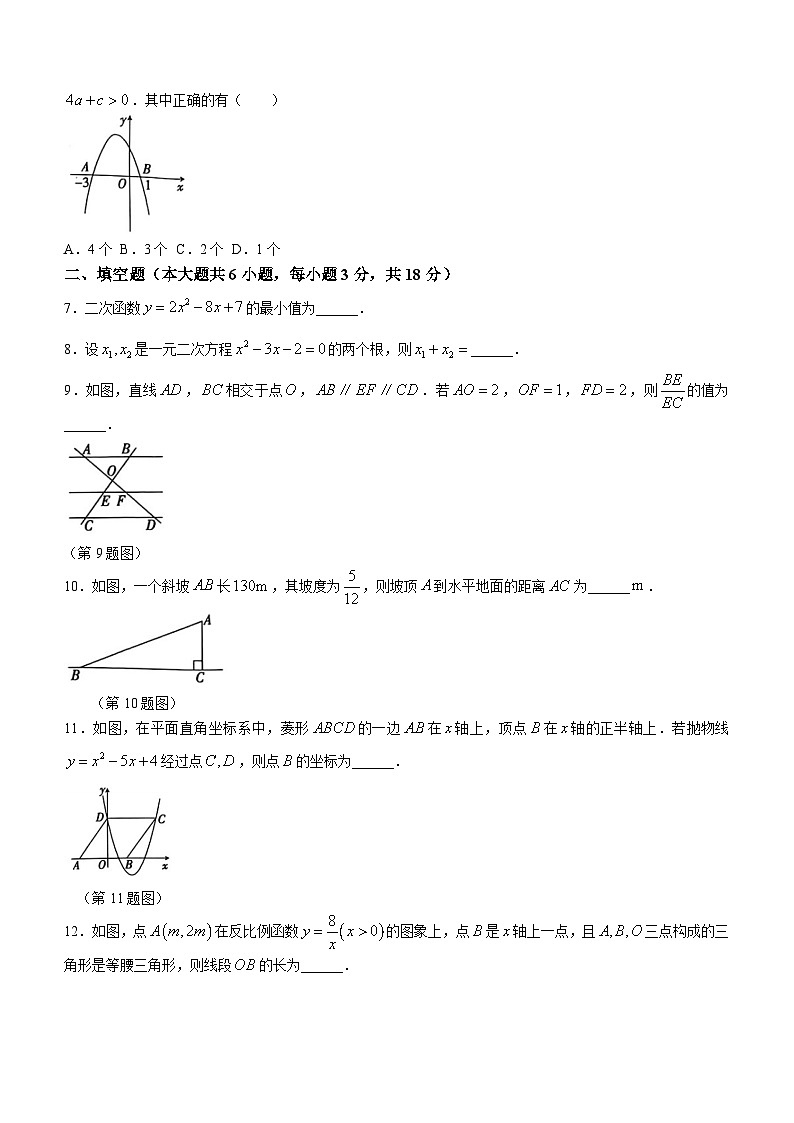 4a+c>0．其中正确的有（　　）
y
A B
-3 O 1 x
A．4个 B．3个 C．2个 D．1个
二、填空题（本大题共6小题，每小题3分，共18分）
7．二次函数 y=2x²-8x+7 的最小值为______．
8．设 x₁,x₂ 是一元二次方程 x²-3x-2=0 的两个根，则 x₁+x₂=______．
9．如图，直线 AD，BC 相交于点 O，AB∥EF∥CD．若 AO=2，OF=1，FD=2，则 BE/EC 的值为
______．
A B
O
E F
C D
（第9题图）
10．如图，一个斜坡 AB 长 130m，其坡度为 5/12，则坡顶 A 到水平地面的距离 AC 为______m．
A
B C
（第10题图）
11．如图，在平面直角坐标系中，菱形 ABCD 的一边 AB 在 x 轴上，顶点 B 在 x 轴的正半轴上．若抛物线
y=x²-5x+4 经过点 C,D，则点 B 的坐标为______．
y
D C
A O B x
（第11题图）
12．如图，点 A(m,2m) 在反比例函数 y=8/x(x>0) 的图象上，点 B 是 x 轴上一点，且 A,B,O 三点构成的三
角形是等腰三角形，则线段 OB 的长为______．